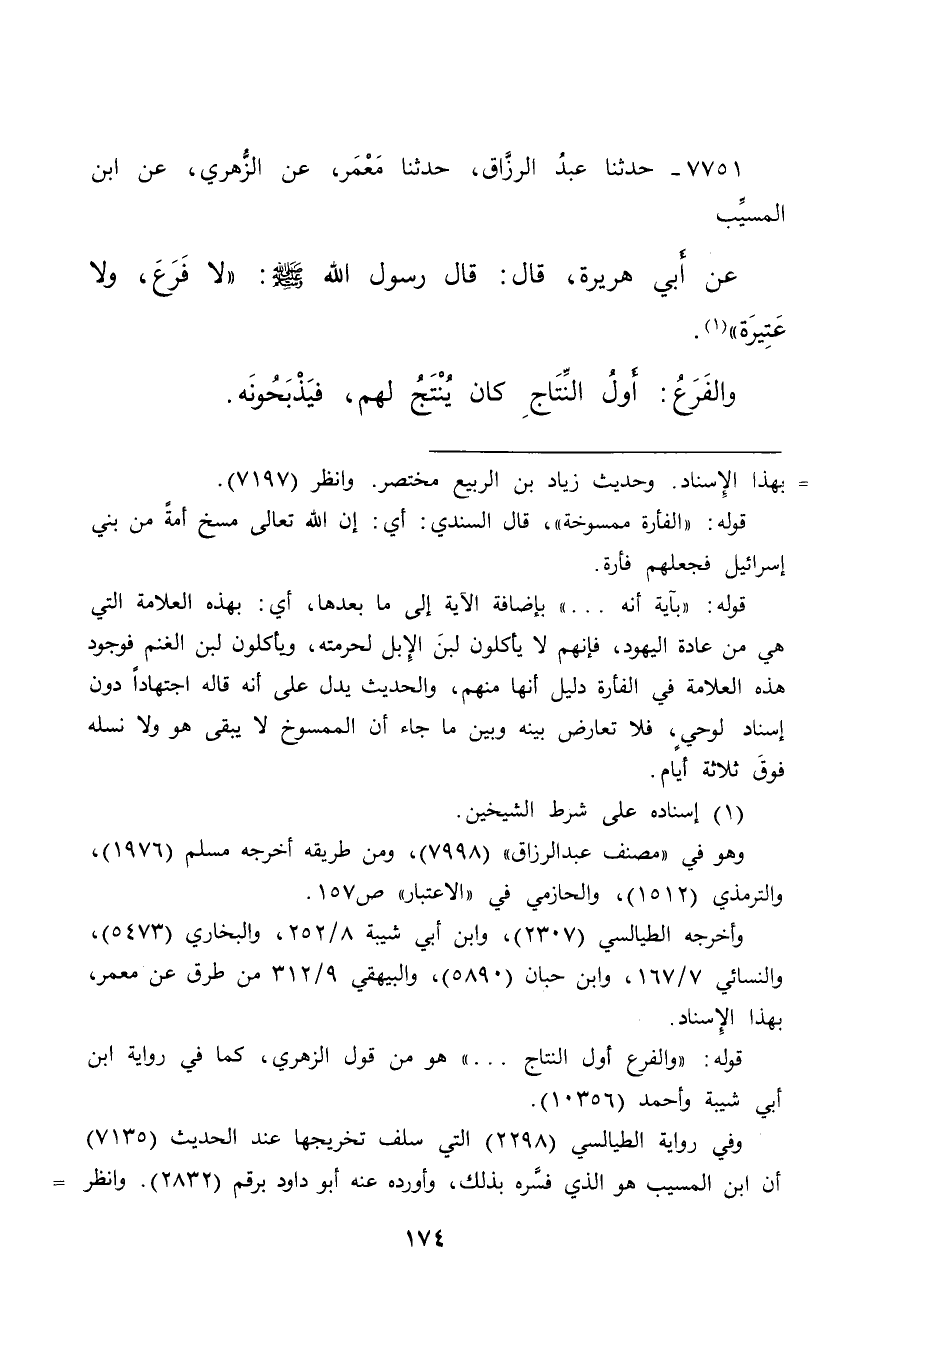 ٧٧٥١ـ حدثنا عبدُ الرزَّاق، حدثنا مَعْمَر، عن الزُّهري، عن ابن
المسيِّب
عن أَبي هريرة، قال: قال رسول الله ﷺ: «لا فَرَعَ، ولا
عَتِيرَة»(١).
والفَرَعُ: أَولُ النِّتَاجِ كان يُنْتَجُ لهم، فيَذْبَحُونَه.
= بهذا الإسناد. وحديث زياد بن الربيع مختصر. وانظر (٧١٩٧).
قوله: «الفأرة ممسوخة»، قال السندي: أي: إن الله تعالى مسخ أمةً من بني
إسرائيل فجعلهم فأرة.
قوله: «بآية أنه ...» بإضافة الآية إلى ما بعدها، أي: بهذه العلامة التي
هي من عادة اليهود، فإنهم لا يأكلون لبنَ الإبل لحرمته، ويأكلون لبن الغنم فوجود
هذه العلامة في الفأرة دليل أنها منهم، والحديث يدل على أنه قاله اجتهاداً دون
إسناد لوحيٍ، فلا تعارض بينه وبين ما جاء أن الممسوخ لا يبقى هو ولا نسله
فوقَ ثلاثة أيام.
(١) إسناده على شرط الشيخين.
وهو في «مصنف عبدالرزاق» (٧٩٩٨)، ومن طريقه أخرجه مسلم (١٩٧٦)،
والترمذي (١٥١٢)، والحازمي في «الاعتبار» ص١٥٧.
وأخرجه الطيالسي (٢٣٠٧)، وابن أبي شيبة ٢٥٢/٨، والبخاري (٥٤٧٣)،
والنسائي ١٦٧/٧، وابن حبان (٥٨٩٠)، والبيهقي ٣١٢/٩ من طرق عن معمر،
بهذا الإسناد.
قوله: «والفرع أول النتاج ...» هو من قول الزهري، كما في رواية ابن
أبي شيبة وأحمد (١٠٣٥٦).
وفي رواية الطيالسي (٢٢٩٨) التي سلف تخريجها عند الحديث (٧١٣٥)
أن ابن المسيب هو الذي فسَّره بذلك، وأورده عنه أبو داود برقم (٢٨٣٢). وانظر =
١٧٤